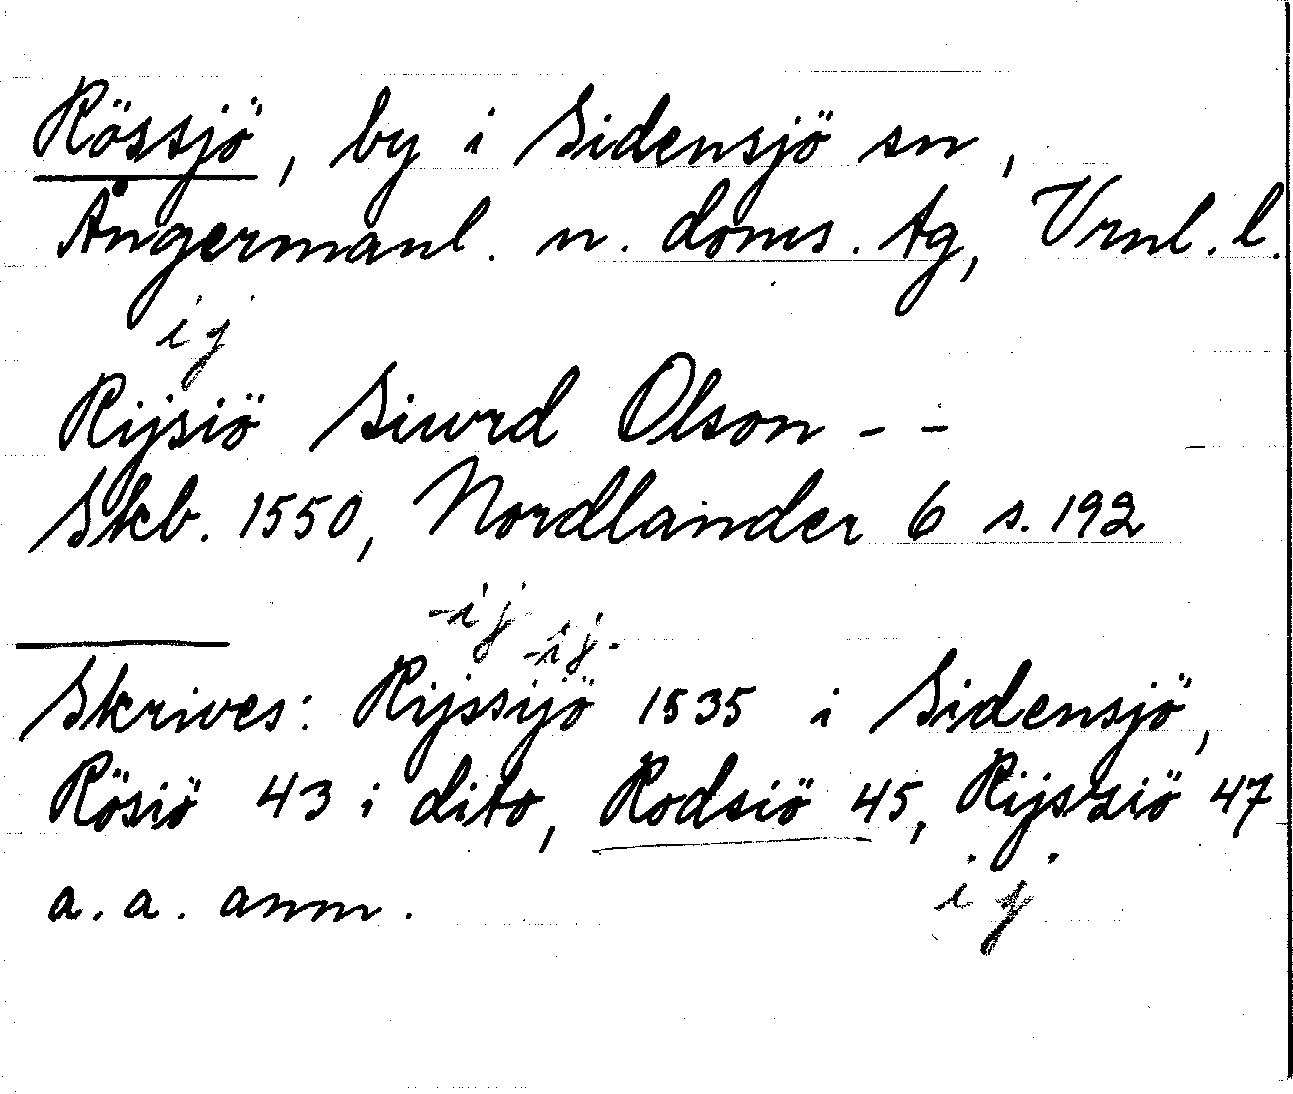 Rössjö, by i Sidensjö sn,
Ångermanl. n. doms. tg, Vrnl. l.
ij
Rijsiö Siwrd Olson - -
Skb. 1550, Nordlander 6 s. 192
-ij- -ij-
Skrives: Rijssijö 1535 i Sidensjö,
Rösiö 43 i dito, Rodsiö 45, Rijssiö 47
ij
a. a. anm.